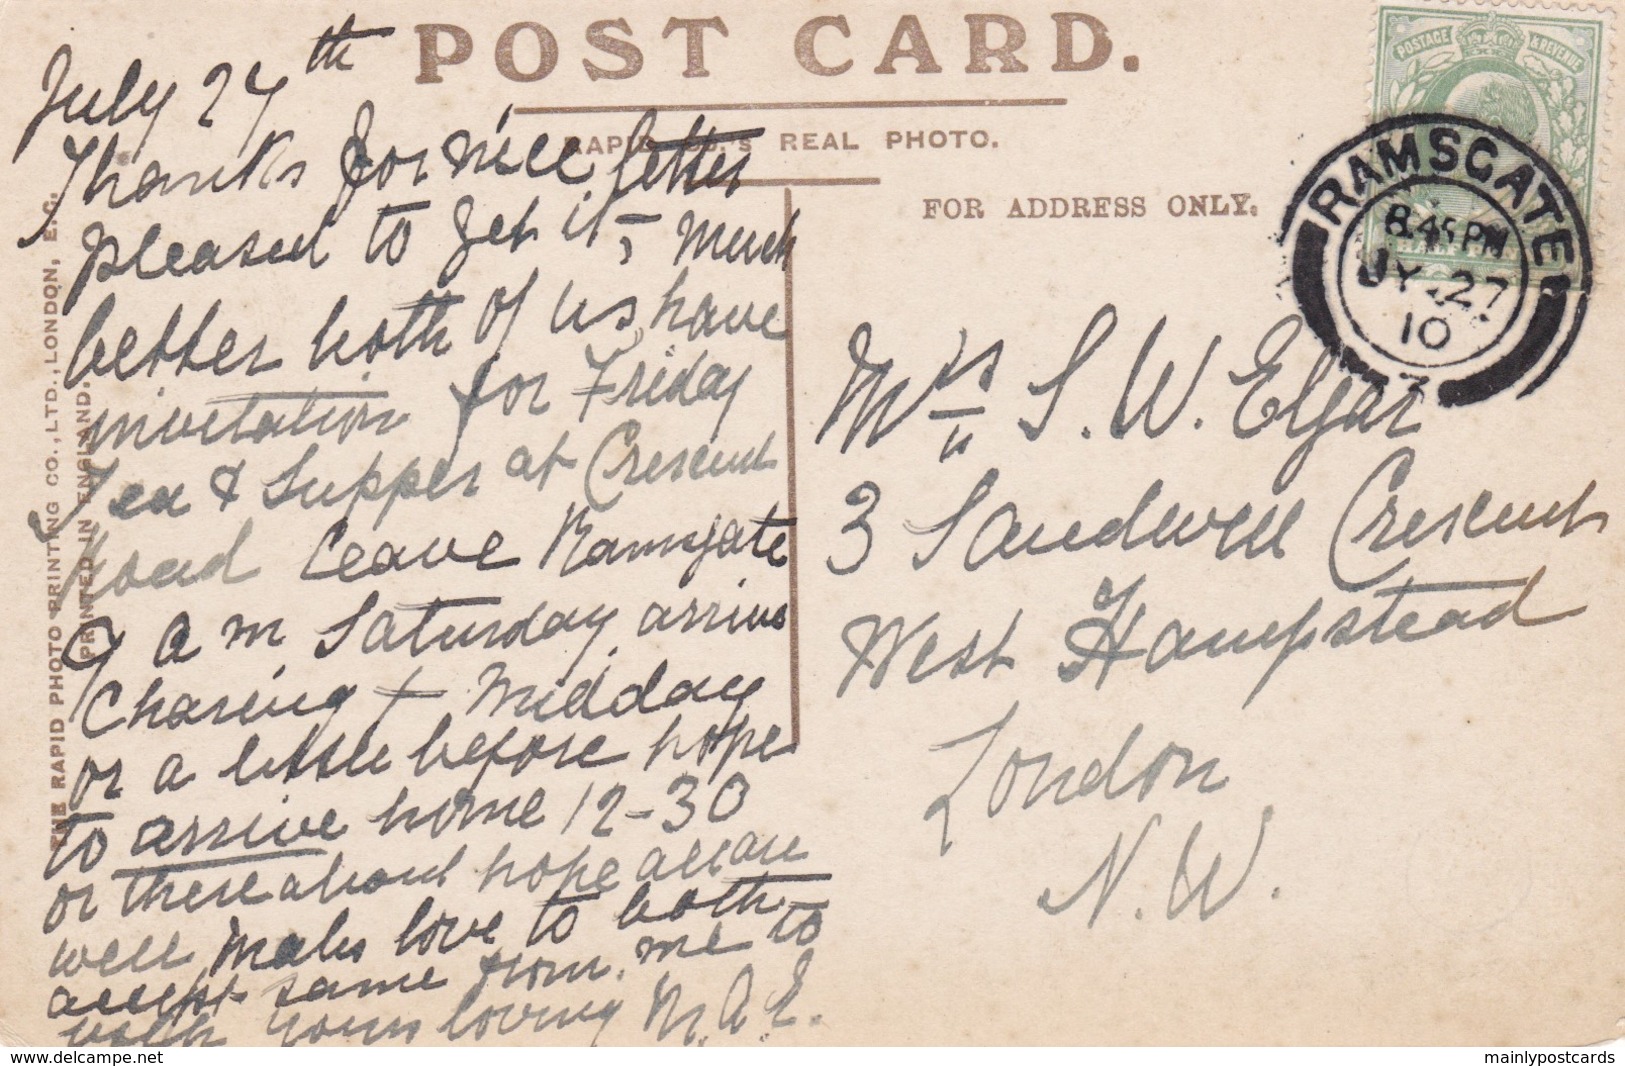 POST CARD.
RAPID CO.'s REAL PHOTO.
FOR ADDRESS ONLY.
THE RAPID PHOTO PRINTING CO., LTD., LONDON, E.C.
PRINTED IN ENGLAND.
POSTAGE & REVENUE
HALFPENNY
RAMSGATE
8.45 PM
JY 27
10
July 27th
Thanks for nice letter
pleased to get it, much
better both of us have
invitation for Friday
Tea & Supper at Crescent
Road Leave Ramsgate
9 a m Saturday, arrive
Charing + Midday
or a little before hope
to arrive home 12-30
or thereabout hope all are
well, Males love to both
accept same from me to
both yours loving M.A.E.
Mrs S. W. Elgar
3 Sandwell Crescent
West Hampstead
London
N.W.
mainlypostcards